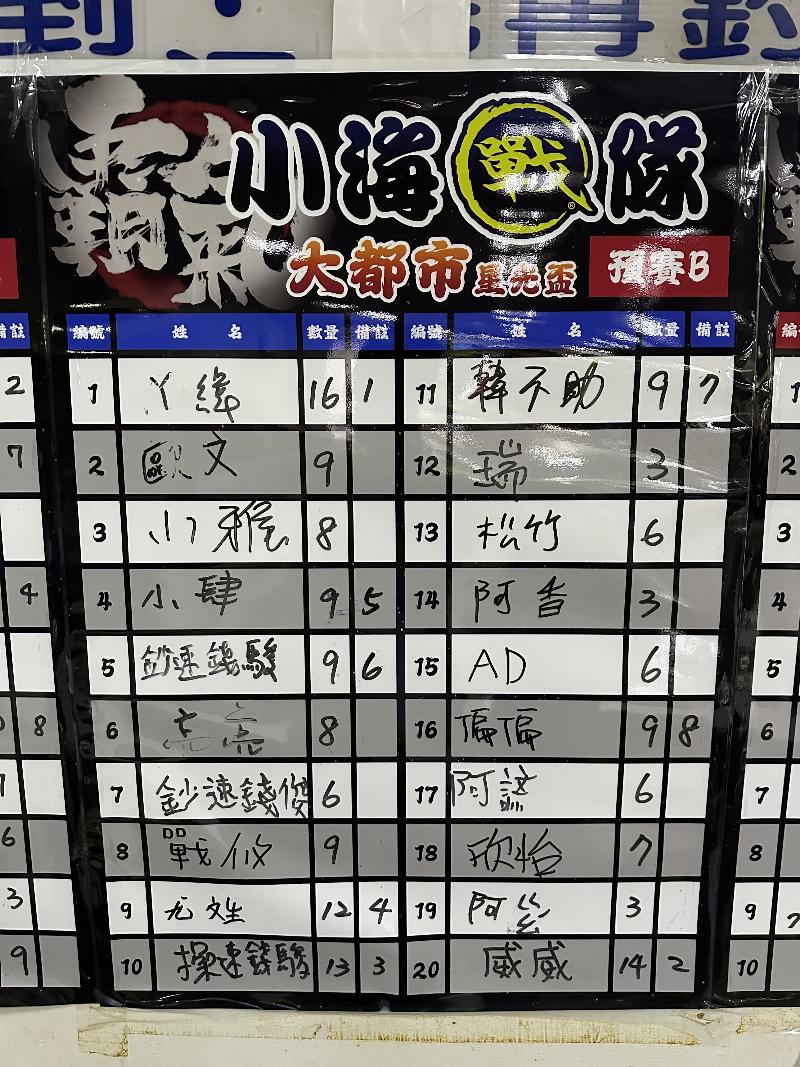 再釣
霸氣
小海戰隊
®
大都市 星光盃 預賽B
編號 姓名 數量 備註 編號 姓名 數量 備註
1 丫緯 16 1 11 韓不助 9 7
2 歐文 9 12 瑞 3
3 小雅 8 13 松竹 6
4 小肆 9 5 14 阿香 3
5 鈔速錢駿 9 6 15 AD 6
6 8 16 偏偏 9 8
7 鈔速錢 6 17 阿 6
8 戰 9 18 欣怡 7
9 12 4 19 阿 3
10 操速錢駿 13 3 20 威威 14 2